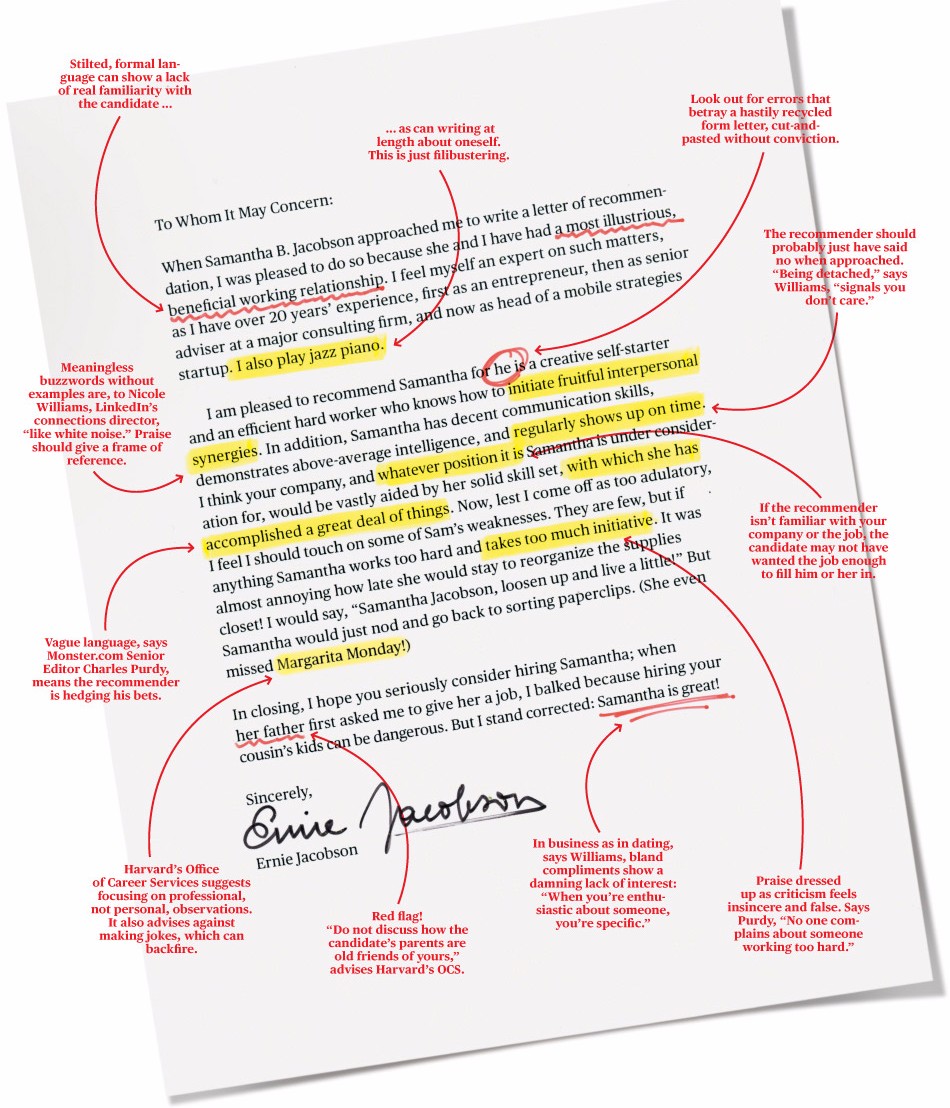 Stilted, formal lan-
guage can show a lack
of real familiarity with
the candidate ...
... as can writing at
length about oneself.
This is just filibustering.
Look out for errors that
betray a hastily recycled
form letter, cut-and-
pasted without conviction.
The recommender should
probably just have said
no when approached.
“Being detached,” says
Williams, “signals you
don’t care.”
To Whom It May Concern:
When Samantha B. Jacobson approached me to write a letter of recommen-
dation, I was pleased to do so because she and I have had a most illustrious,
beneficial working relationship. I feel myself an expert on such matters,
as I have over 20 years’ experience, first as an entrepreneur, then as senior
adviser at a major consulting firm, and now as head of a mobile strategies
startup. I also play jazz piano.
I am pleased to recommend Samantha for he is a creative self-starter
and an efficient hard worker who knows how to initiate fruitful interpersonal
synergies. In addition, Samantha has decent communication skills,
demonstrates above-average intelligence, and regularly shows up on time.
I think your company, and whatever position it is Samantha is under consider-
ation for, would be vastly aided by her solid skill set, with which she has
accomplished a great deal of things. Now, lest I come off as too adulatory,
I feel I should touch on some of Sam’s weaknesses. They are few, but if
anything Samantha works too hard and takes too much initiative. It was
almost annoying how late she would stay to reorganize the supplies
closet! I would say, “Samantha Jacobson, loosen up and live a little!” But
Samantha would just nod and go back to sorting paperclips. (She even
missed Margarita Monday!)
In closing, I hope you seriously consider hiring Samantha; when
her father first asked me to give her a job, I balked because hiring your
cousin’s kids can be dangerous. But I stand corrected: Samantha is great!
Sincerely,
Ernie Jacobson
Ernie Jacobson
Meaningless
buzzwords without
examples are, to Nicole
Williams, LinkedIn’s
connections director,
“like white noise.” Praise
should give a frame of
reference.
If the recommender
isn’t familiar with your
company or the job, the
candidate may not have
wanted the job enough
to fill him or her in.
Vague language, says
Monster.com Senior
Editor Charles Purdy,
means the recommender
is hedging his bets.
Harvard’s Office
of Career Services suggests
focusing on professional,
not personal, observations.
It also advises against
making jokes, which can
backfire.
Red flag!
“Do not discuss how the
candidate’s parents are
old friends of yours,”
advises Harvard’s OCS.
In business as in dating,
says Williams, bland
compliments show a
damning lack of interest:
“When you’re enthu-
siastic about someone,
you’re specific.”
Praise dressed
up as criticism feels
insincere and false. Says
Purdy, “No one com-
plains about someone
working too hard.”